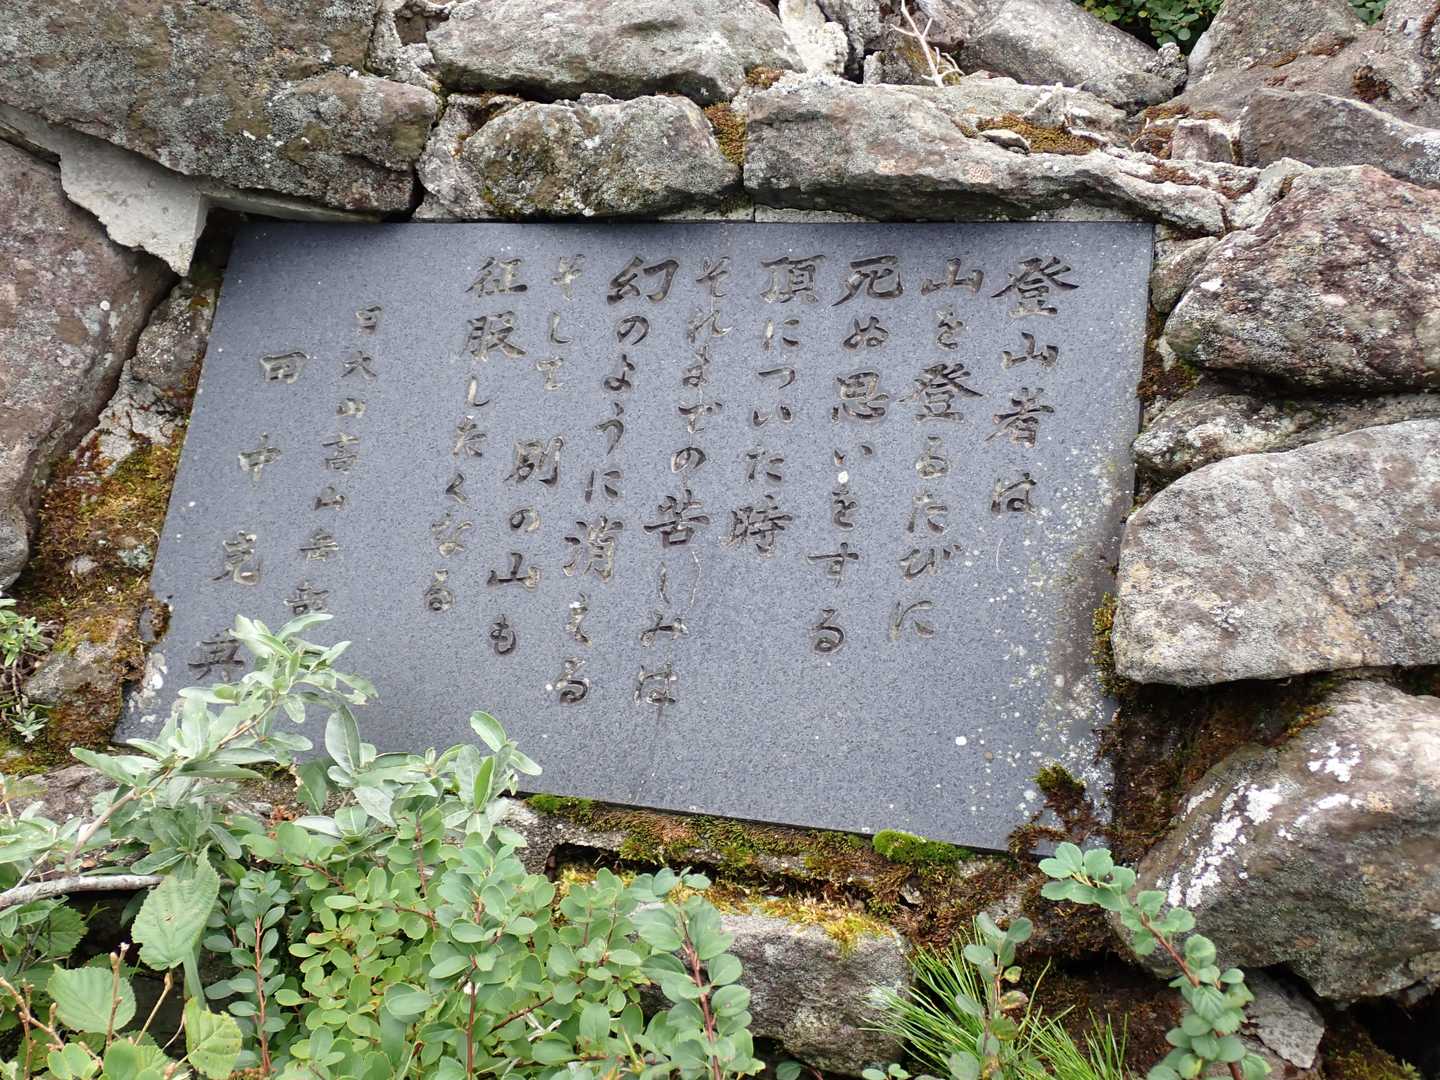 登山者は
山を登るたびに
死ぬ思いをする
頂についた時
それまでの苦しみは
幻のように消える
そして 別の山も
征服したくなる
日大山高山岳部
田中克典